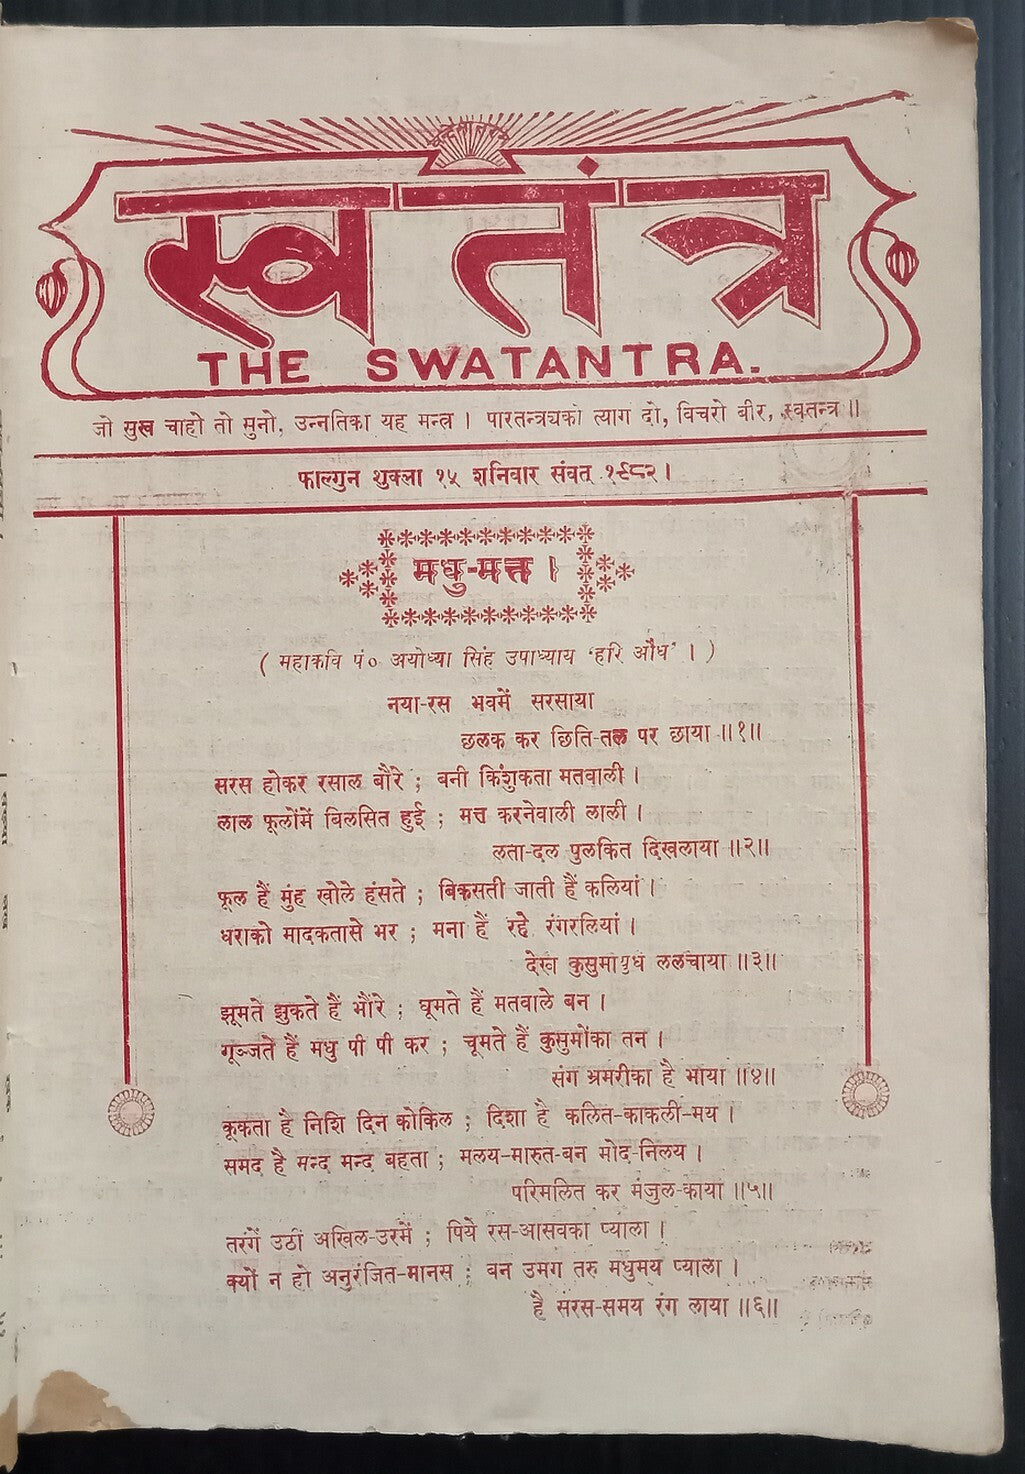 स्वतंत्र
THE SWATANTRA.
जो सुख चाहो तो सुनो, उन्नतिका यह मन्त्र । पारतन्त्र्यको त्याग दो, विचरो वीर, स्वतन्त्र ॥
फाल्गुन शुक्ला १५ शनिवार संवत् १९८२ ।
मधु-मत्त ।
( महाकवि पं० अयोध्या सिंह उपाध्याय ‘हरि औध’ । )
नया-रस भवमें सरसाया
छलक कर छिति-तल पर छाया ॥१॥
सरस होकर रसाल बौरे ; बनी किंशुकता मतवाली ।
लाल फूलोंमें बिलसित हुई ; मत्त करनेवाली लाली ।
लता-दल पुलकित दिखलाया ॥२॥
फूल हैं मुंह खोले हंसते ; बिकसती जाती हैं कलियां ।
धराको मादकतासे भर ; मना हैं रहे रंगरलियां ।
देख कुसुमायुध ललचाया ॥३॥
झूमते झुकते हैं भौंरे ; घूमते हैं मतवाले बन ।
गूञ्जते हैं मधु पी पी कर ; चूमते हैं कुसुमोंका तन ।
संग भ्रमरीका है भाया ॥४॥
कूकता है निशि दिन कोकिल ; दिशा है कलित-काकली-मय ।
समद है मन्द मन्द बहता ; मलय-मारुत-बन मोद-निलय ।
परिमलित कर मंजुल-काया ॥५॥
तरंगें उठीं अखिल-उरमें ; पिये रस-आसवका प्याला ।
क्यों न हो अनुरंजित-मानस ; बन उमग तरु मधुमय प्याला ।
है सरस-समय रंग लाया ॥६॥